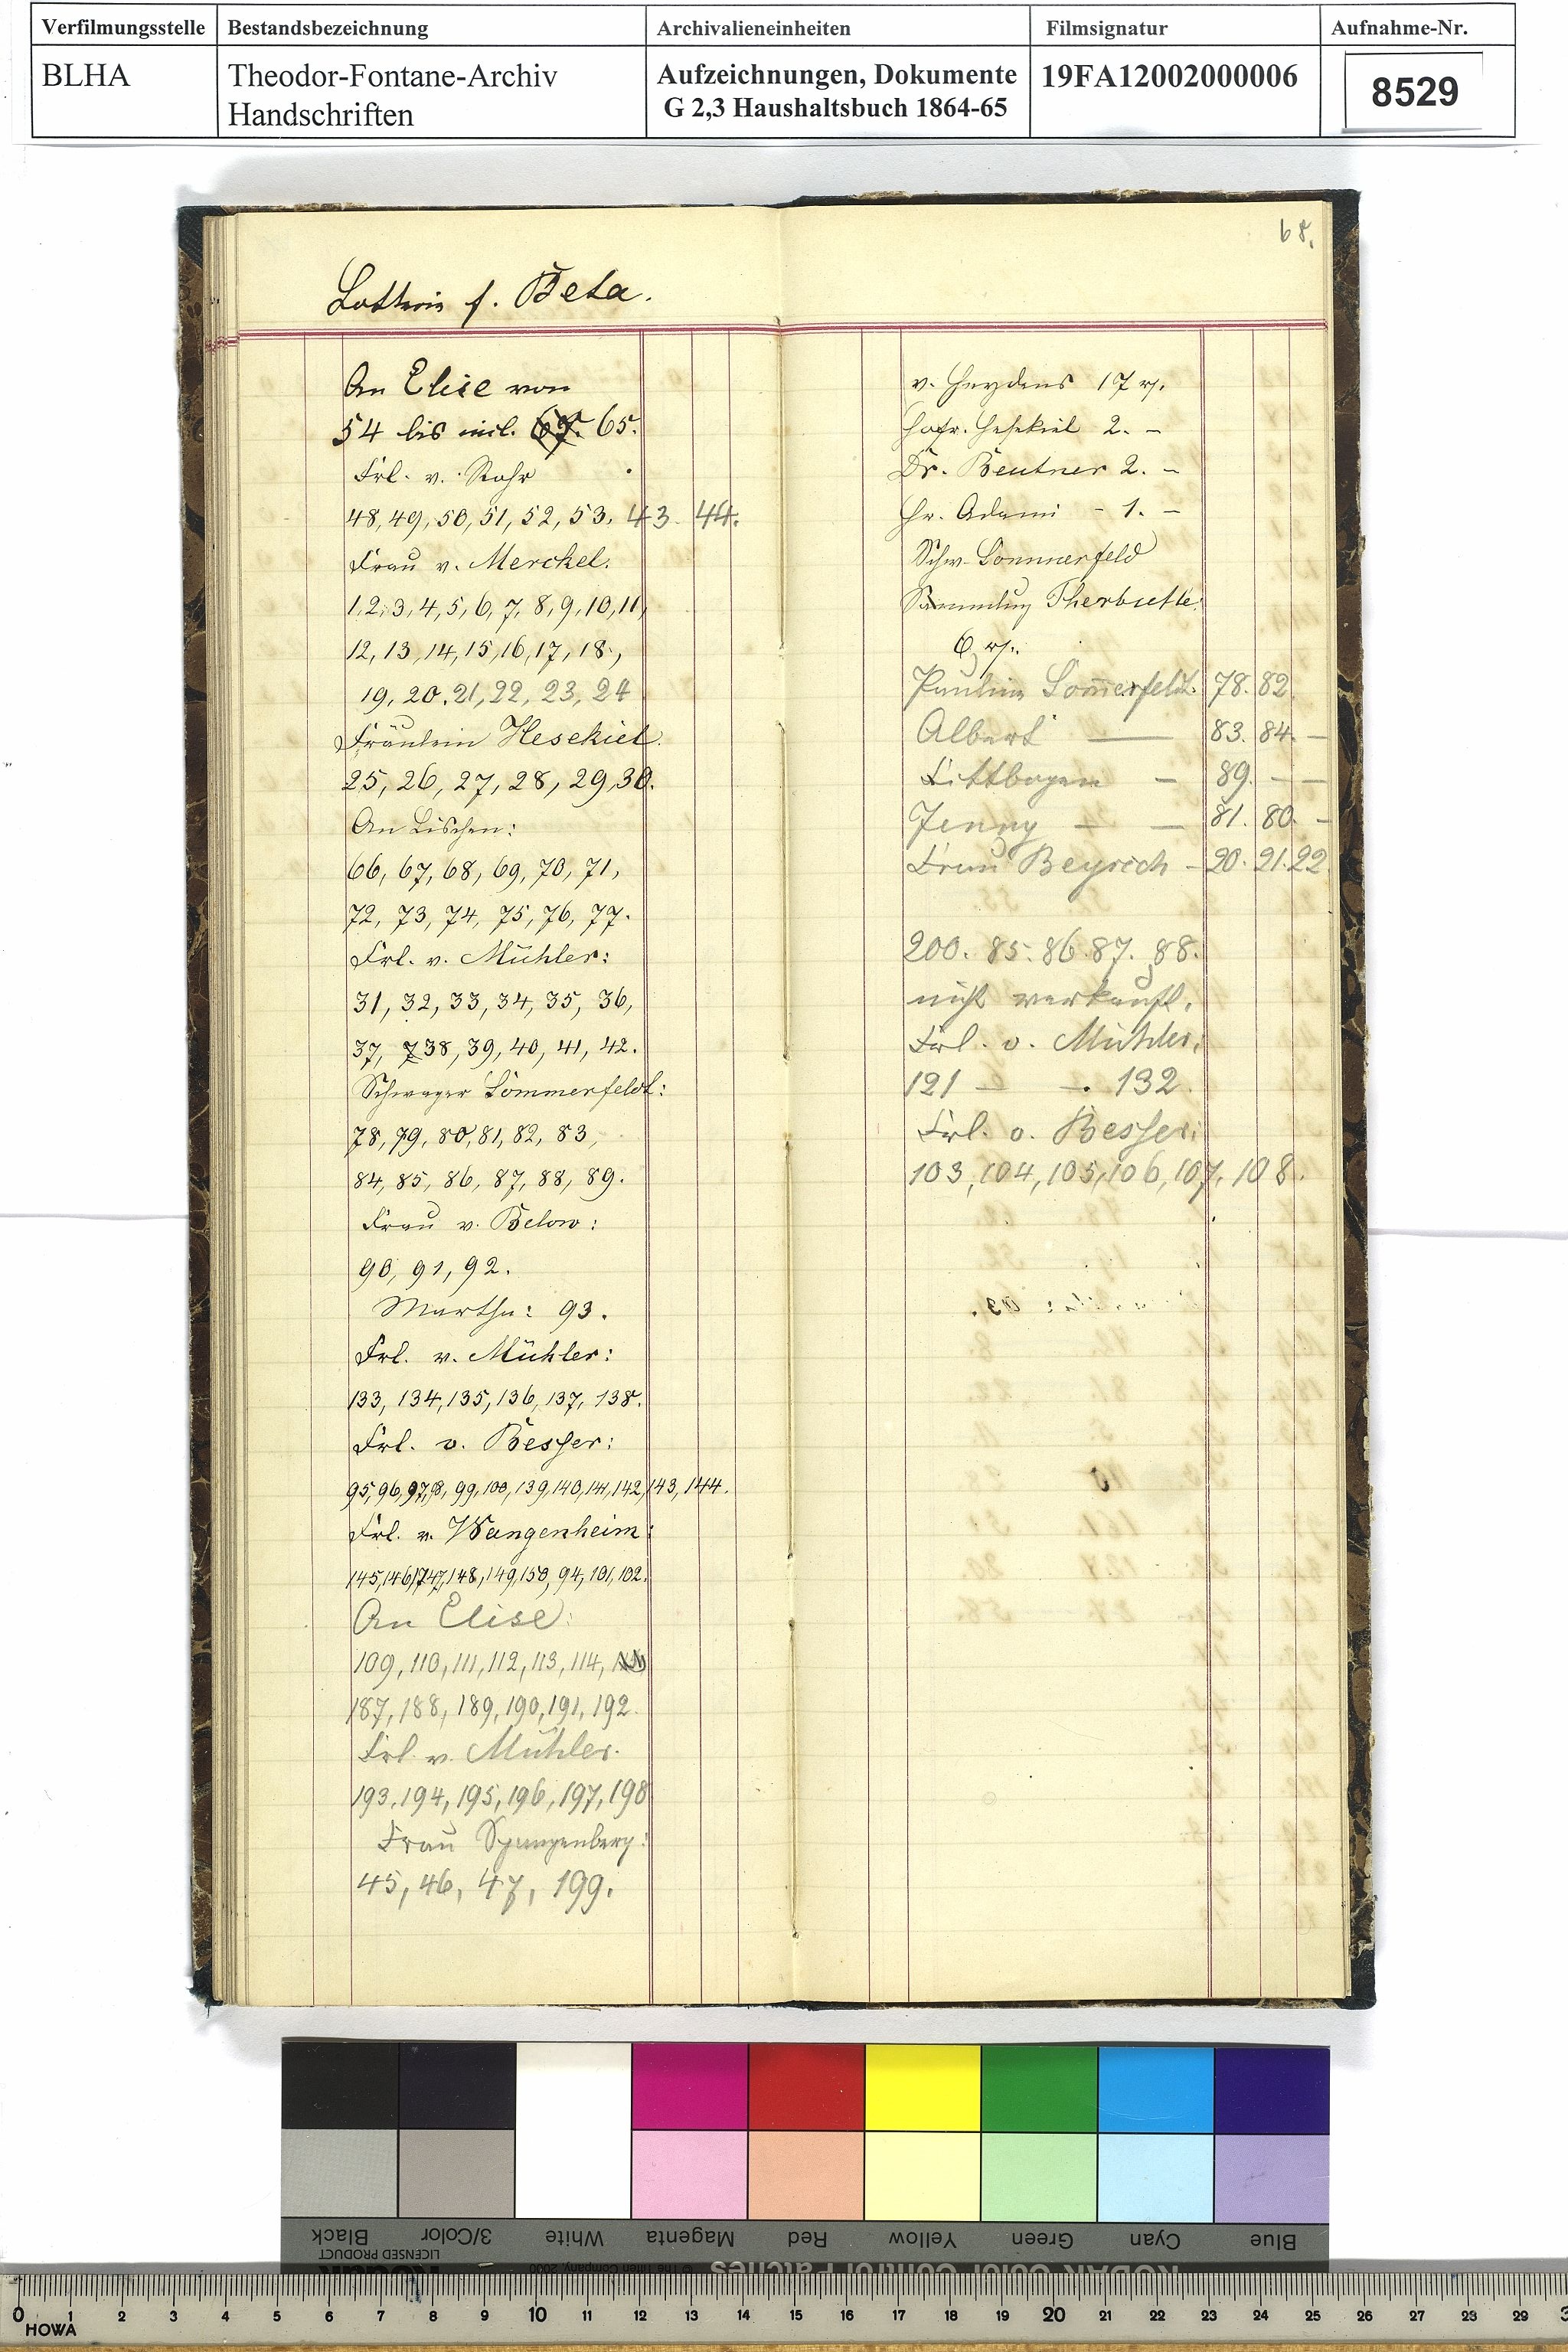 Verfilmungsstelle
BLHA
Bestandsbezeichnung
Theodor-Fontane-Archiv
Handschriften
Archivalieneinheiten
Aufzeichnungen, Dokumente
G 2,3 Haushaltsbuch 1864-65
Filmsignatur
19FA12002000006
Aufnahme-Nr.
8529
Lotterie f. Beta.
An Elise von
54 bis incl. 67. 65.
Frl. v. Rohr
48, 49, 50, 51, 52, 53. 43. 44.
Frau v. Merckel.
1, 2, 3, 4, 5, 6, 7, 8, 9, 10, 11,
12, 13, 14, 15, 16, 17, 18.,
19, 20. 21, 22, 23, 24
Fräulein Hesekiel.
25, 26, 27, 28, 29, 30.
An Lischen:
66, 67, 68, 69, 70, 71,
72, 73, 74, 75, 76, 77.
Frl. v. Mühler:
31, 32, 33, 34, 35, 36,
37, 38, 39, 40, 41, 42.
Schwager Sommerfeldt:
78, 79, 80, 81, 82, 83,
84, 85, 86, 87, 88, 89.
Frau v. Below:
90, 91, 92.
Martha: 93.
Frl. v. Mühler:
133, 134, 135, 136, 137, 138.
Frl. v. Besser:
95, 96, 97, 98, 99, 100, 139, 140, 141, 142, 143, 144.
Frl. v. Wangenheim:
145, 146, 147, 148, 149, 150, 94, 101, 102.
An Elise:
109, 110, 111, 112, 113, 114,
187, 188, 189, 190, 191, 192.
Frl. v. Mühler.
193, 194, 195, 196, 197, 198
Frau Spangenberg:
45, 46, 47, 199.
68.
v. Heydens 17 rh.
Hofr. Hesekiel 2. –
Dr. Beutner 2. –
Hr. Adami – 1. –
Schw. Sommerfeld
Sammlung Therbusch
6 rh.
Pauline Sommerfeldt. 78. 82.
Albert — 83. 84. –
Littbogen – 89. – –
Jenny – – 81. 80. –
Frau Beyrich – 20. 21. 22
200. 85. 86. 87. 88.
nicht verkauft.
Frl. v. Mühler:
121 – – . 132.
Frl. v. Besser:
103, 104, 105, 106, 107, 108.
Black 3/Color White Magenta Red Yellow Green Cyan Blue
Kodak
LICENSED PRODUCT
© The Tiffen Company, 2000
KODAK Color Control Patches
0 1 2 3 4 5 6 7 8 9 10 11 12 13 14 15 16 17 18 19 20 21 22 23 24 25 26 27 28 29 3
HOWA